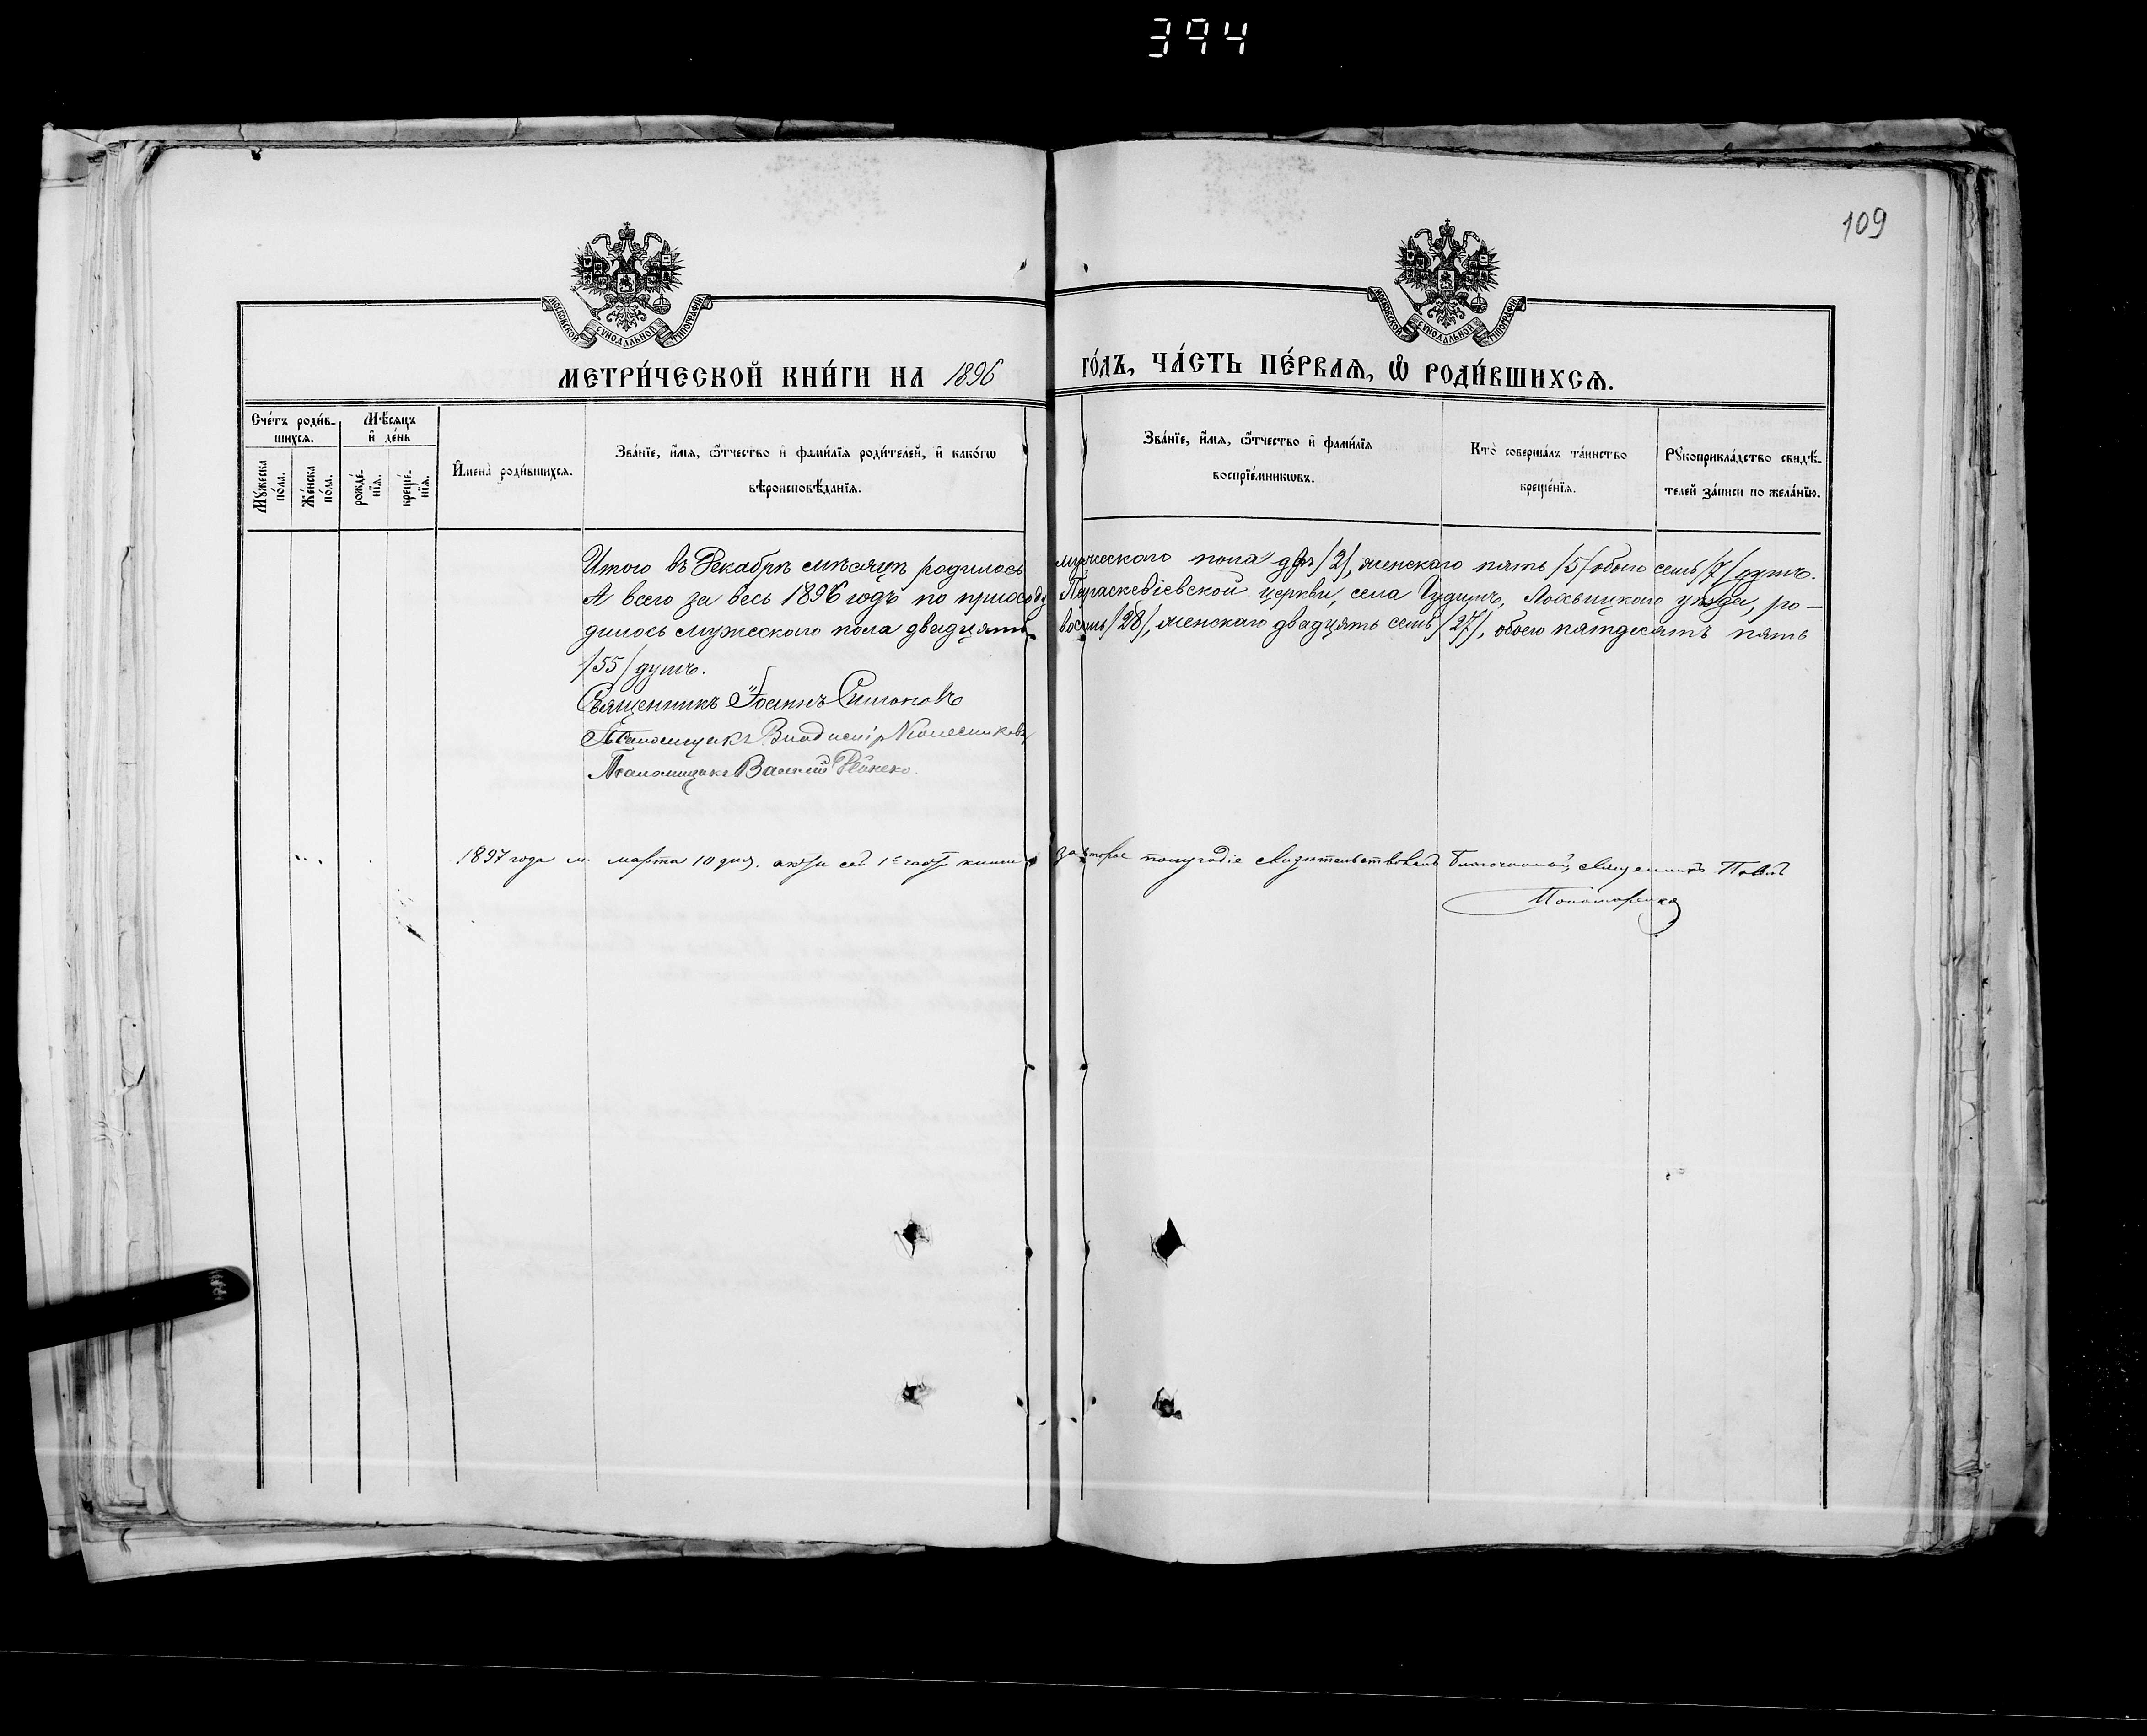 394
109
МОСКОВСКОЙ СѴНОДАЛЬНОЙ ТИПОГРАФІИ
МОСКОВСКОЙ СѴНОДАЛЬНОЙ ТИПОГРАФІИ
МЕТРИ́ЧЕСКОЙ КНИ́ГИ НА 1896 ГО́ДЪ, ЧА́СТЬ ПЕ́РВАѦ, Ѽ РОДИ́ВШИХСѦ.
Сче́тъ роди́в-
шихсѧ.
Мѣ́сѧцъ
и҆ де́нь
Мꙋ́жеска
по́ла.
Же́нска
по́ла.
рожде́-
нїѧ.
креще́-
нїѧ.
И҆мена̀ роди́вшихсѧ.
Зва́нїе, и҆́мѧ, ѻ҆́тчество и҆ фами́лїѧ роди́телей, и҆ како́гѡ
вѣроисповѣ́данїѧ.
Зва́нїе, и҆́мѧ, ѻ҆́тчество и҆ фами́лїѧ
воспрїе́мникѡвъ.
Кто̀ соверша́лъ та́инство
креще́нїѧ.
Рꙋкоприкла́дство свидѣ́-
телей за́писи по жела́нїю.
Итого въ Декабрѣ мѣсяцѣ родилось мужескаго пола два /2/, женскаго пять /5/ обоего семь /7/ душъ.
А всего за весь 1896 годъ по приходу Параскевіевской церкви, села Лохвицкаго уѣзда, ро-
дилось мужескаго пола двадцять восемь /28/, женскаго двадцять семь /27/, обоего пятдесятъ пять
/55/ душъ.
Священникъ Іоаннъ Симоновъ
Псаломщикъ Владиміръ Колесниковъ
Псаломщикъ Василій
1897 года м. марта 10 дня. акты сей 1й части книги за второе полугодіе свидѣтельствовалъ благочинный, священникъ Павелъ
Пономаренко